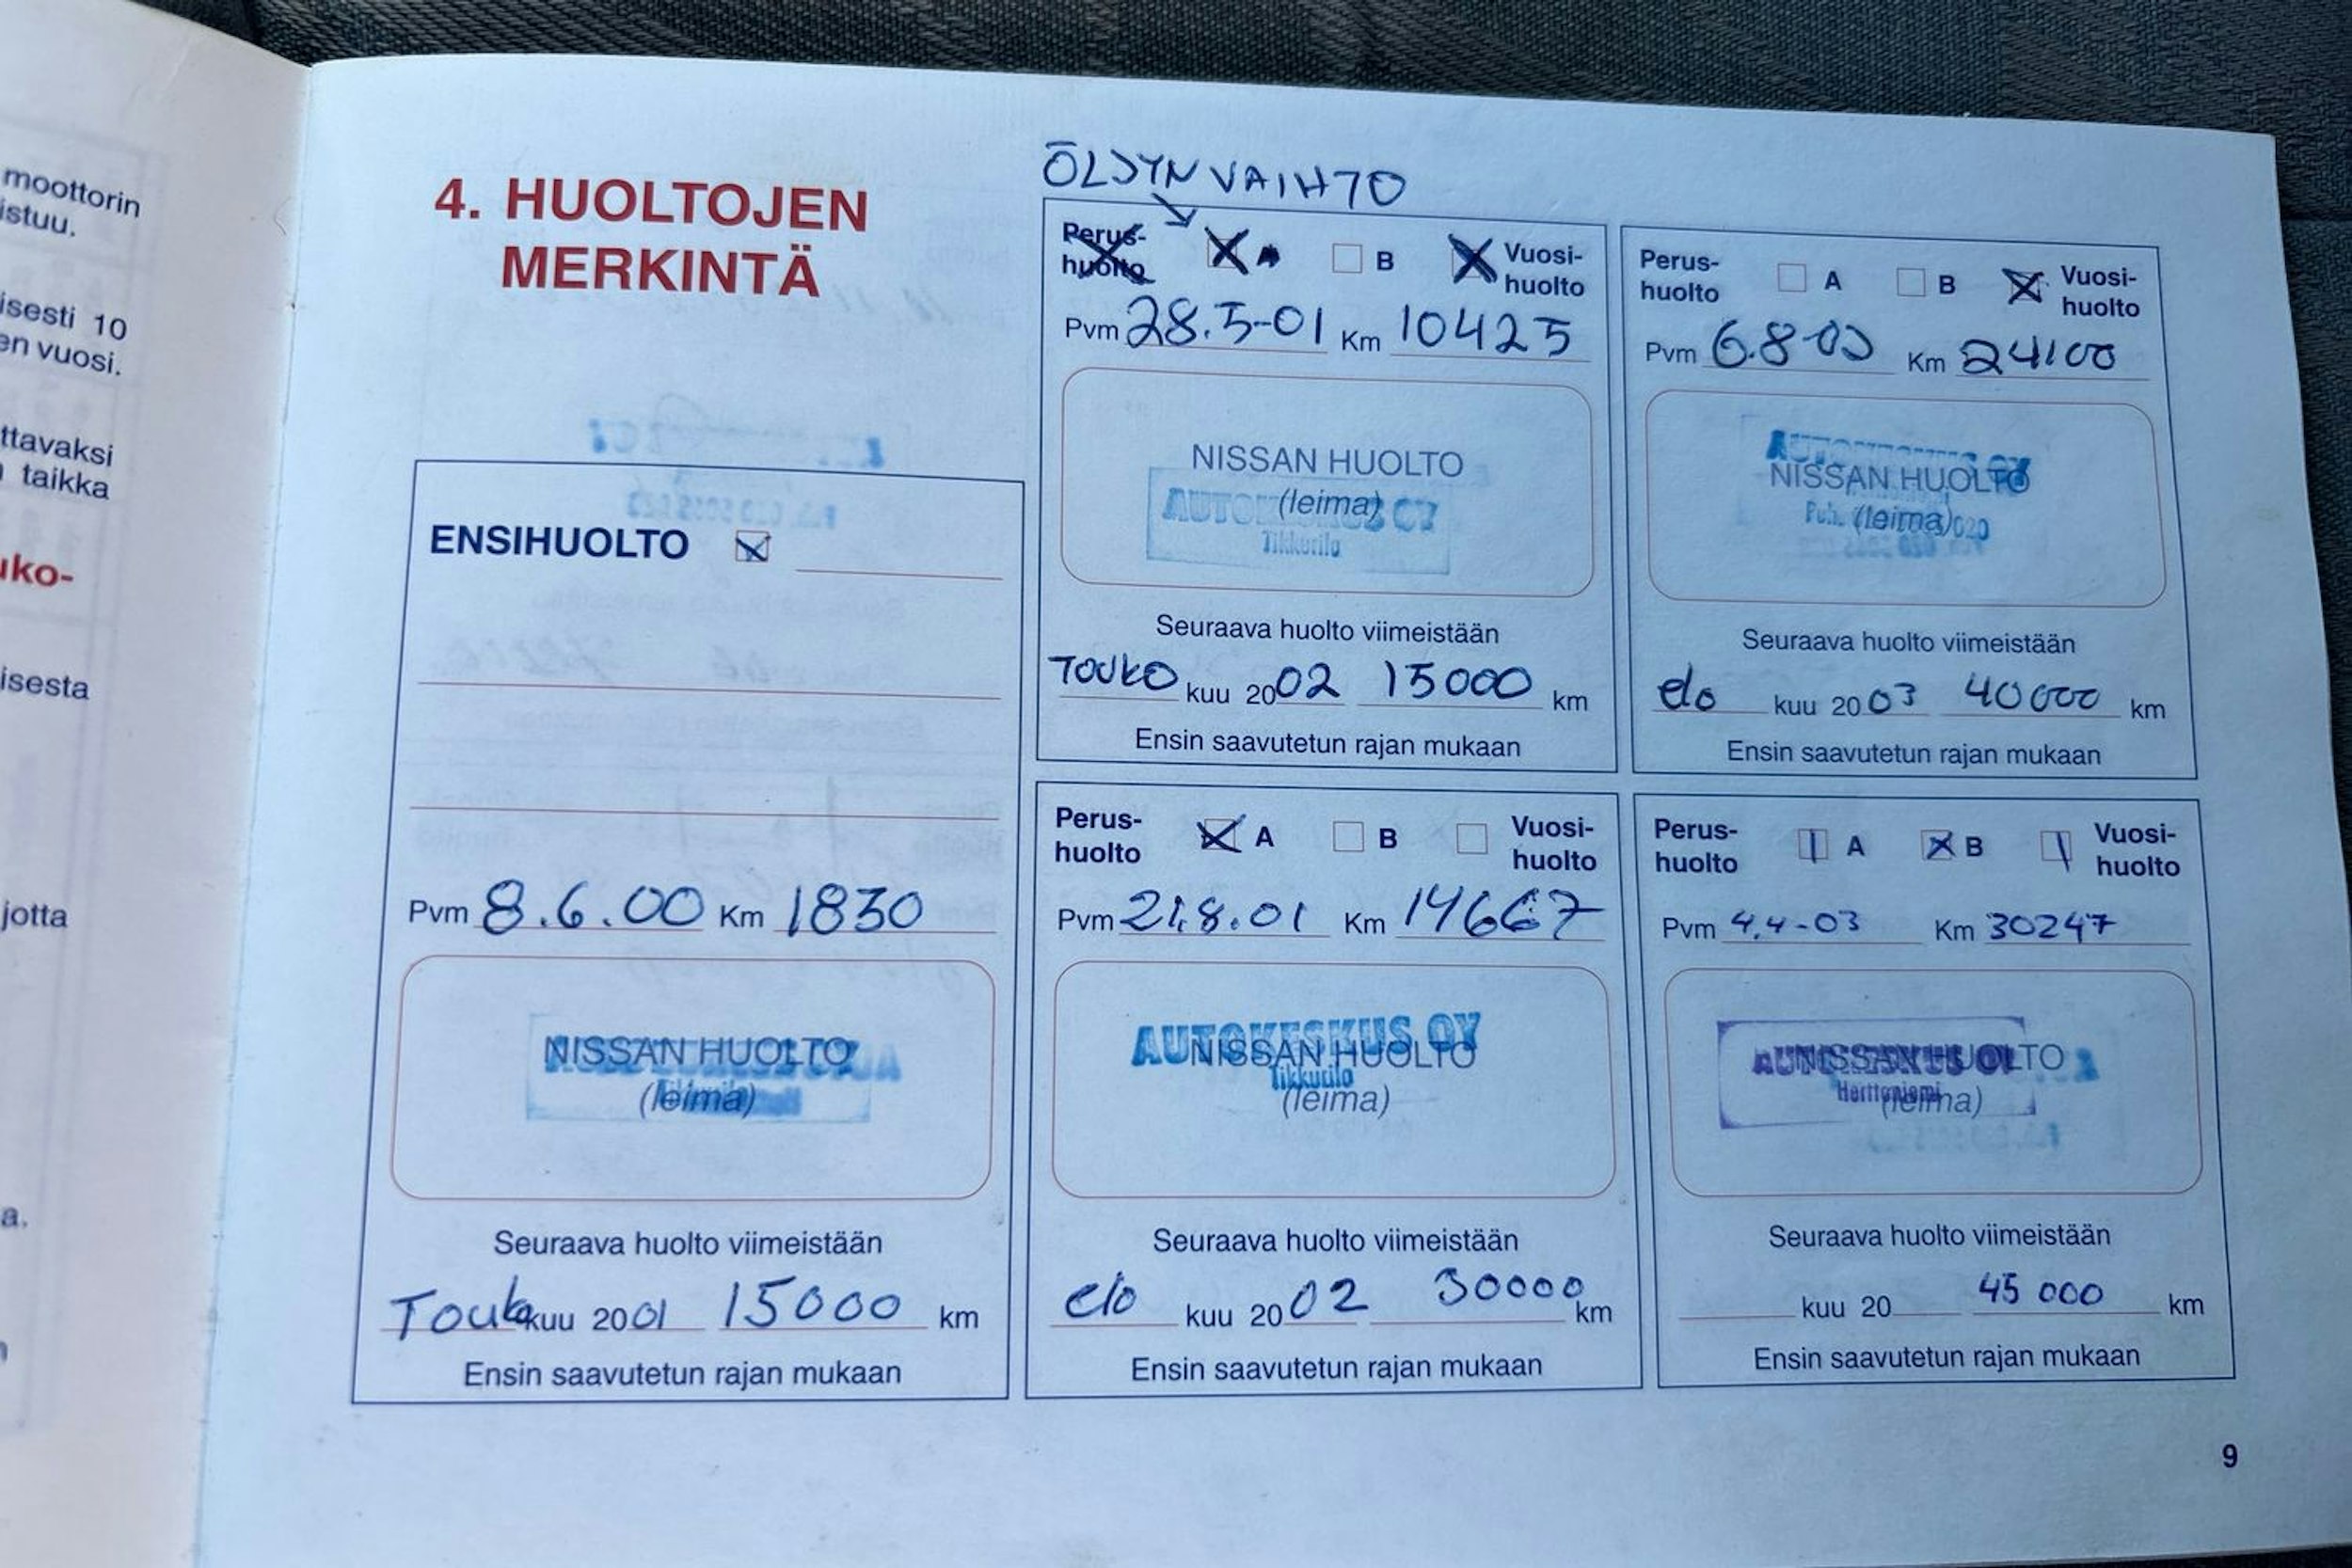 moottorin
istuu.
isesti 10
en vuosi.
ttavaksi
taikka
uko-
isesta
jotta
a.
4. HUOLTOJEN
MERKINTÄ
ENSIHUOLTO
Pvm 8.6.00 Km 1830
NISSAN HUOLTO
(leima)
Seuraava huolto viimeistään
Touko kuu 2001 15000 km
Ensin saavutetun rajan mukaan
ÖLJYN VAIHTO
Perus-
huolto
A B Vuosi-
huolto
Pvm 28.5-01 Km 10425
NISSAN HUOLTO
(leima)
AUTOKESKUS OY
Tikkurila
Seuraava huolto viimeistään
TOUKO kuu 2002 15000 km
Ensin saavutetun rajan mukaan
Perus-
huolto
A B Vuosi-
huolto
Pvm 21.8.01 Km 14667
AUTOKESKUS OY
NISSAN HUOLTO
Tikkurila
(leima)
Seuraava huolto viimeistään
elo kuu 2002 30000 km
Ensin saavutetun rajan mukaan
Perus-
huolto
A B Vuosi-
huolto
Pvm 6.8 Km 24100
AUTOKESKUS OY
NISSAN HUOLTO
Puh. (leima)
Seuraava huolto viimeistään
elo kuu 2003 40000 km
Ensin saavutetun rajan mukaan
Perus-
huolto
A B Vuosi-
huolto
Pvm 4.4-03 Km 30247
AUTOKESKUS OY
NISSAN HUOLTO
Herttoniemi
(leima)
Seuraava huolto viimeistään
kuu 20 45 000 km
Ensin saavutetun rajan mukaan
9